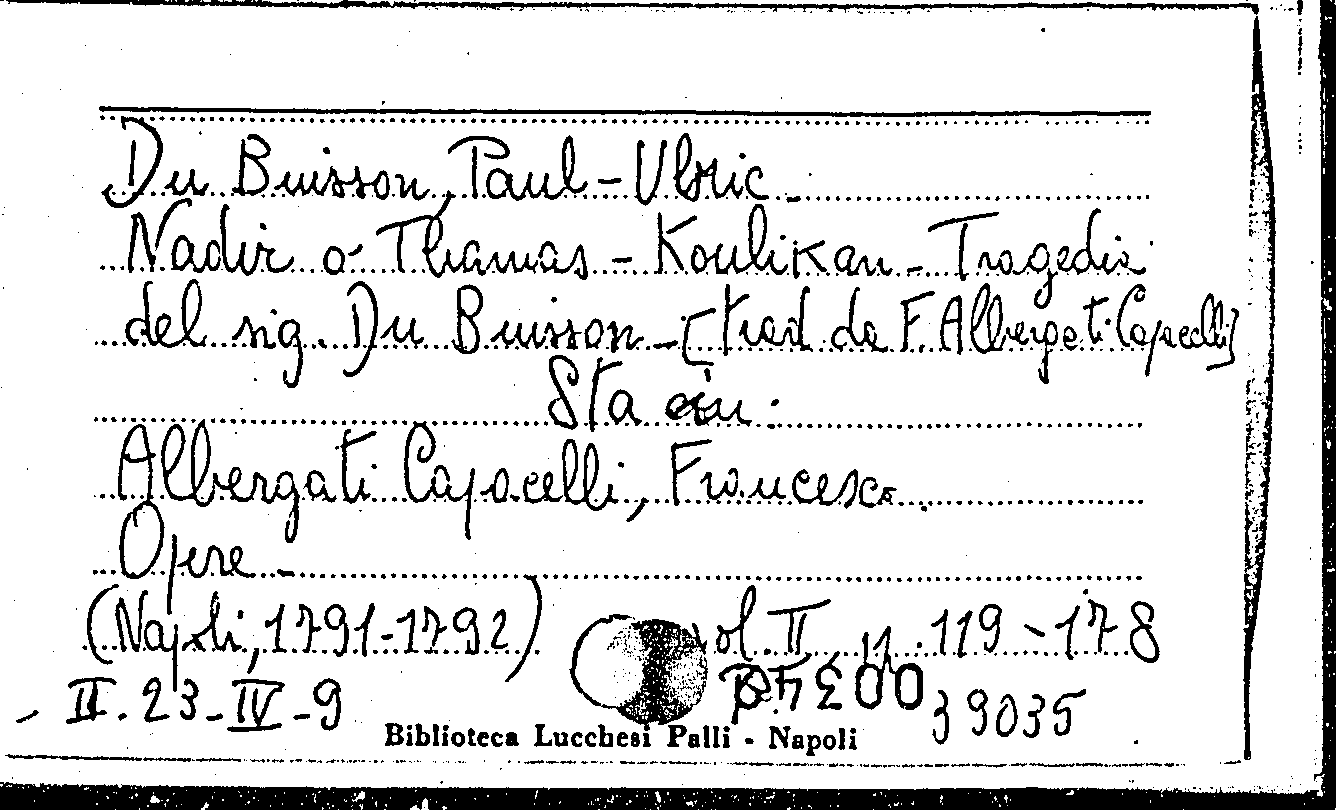 Du Buisson, Paul-Ulric
Nadir o Thamas - Koulikan - Tragedia
del sig. Du Buisson - [trad da F. Albergati Capacelli]
Sta in:
Albergati Capacelli, Francesco
Opere -
(Napoli, 1791-1792) vol. II, pp. 119-178
II. 23 - IV - 9
39035
Biblioteca Lucchesi Palli - Napoli